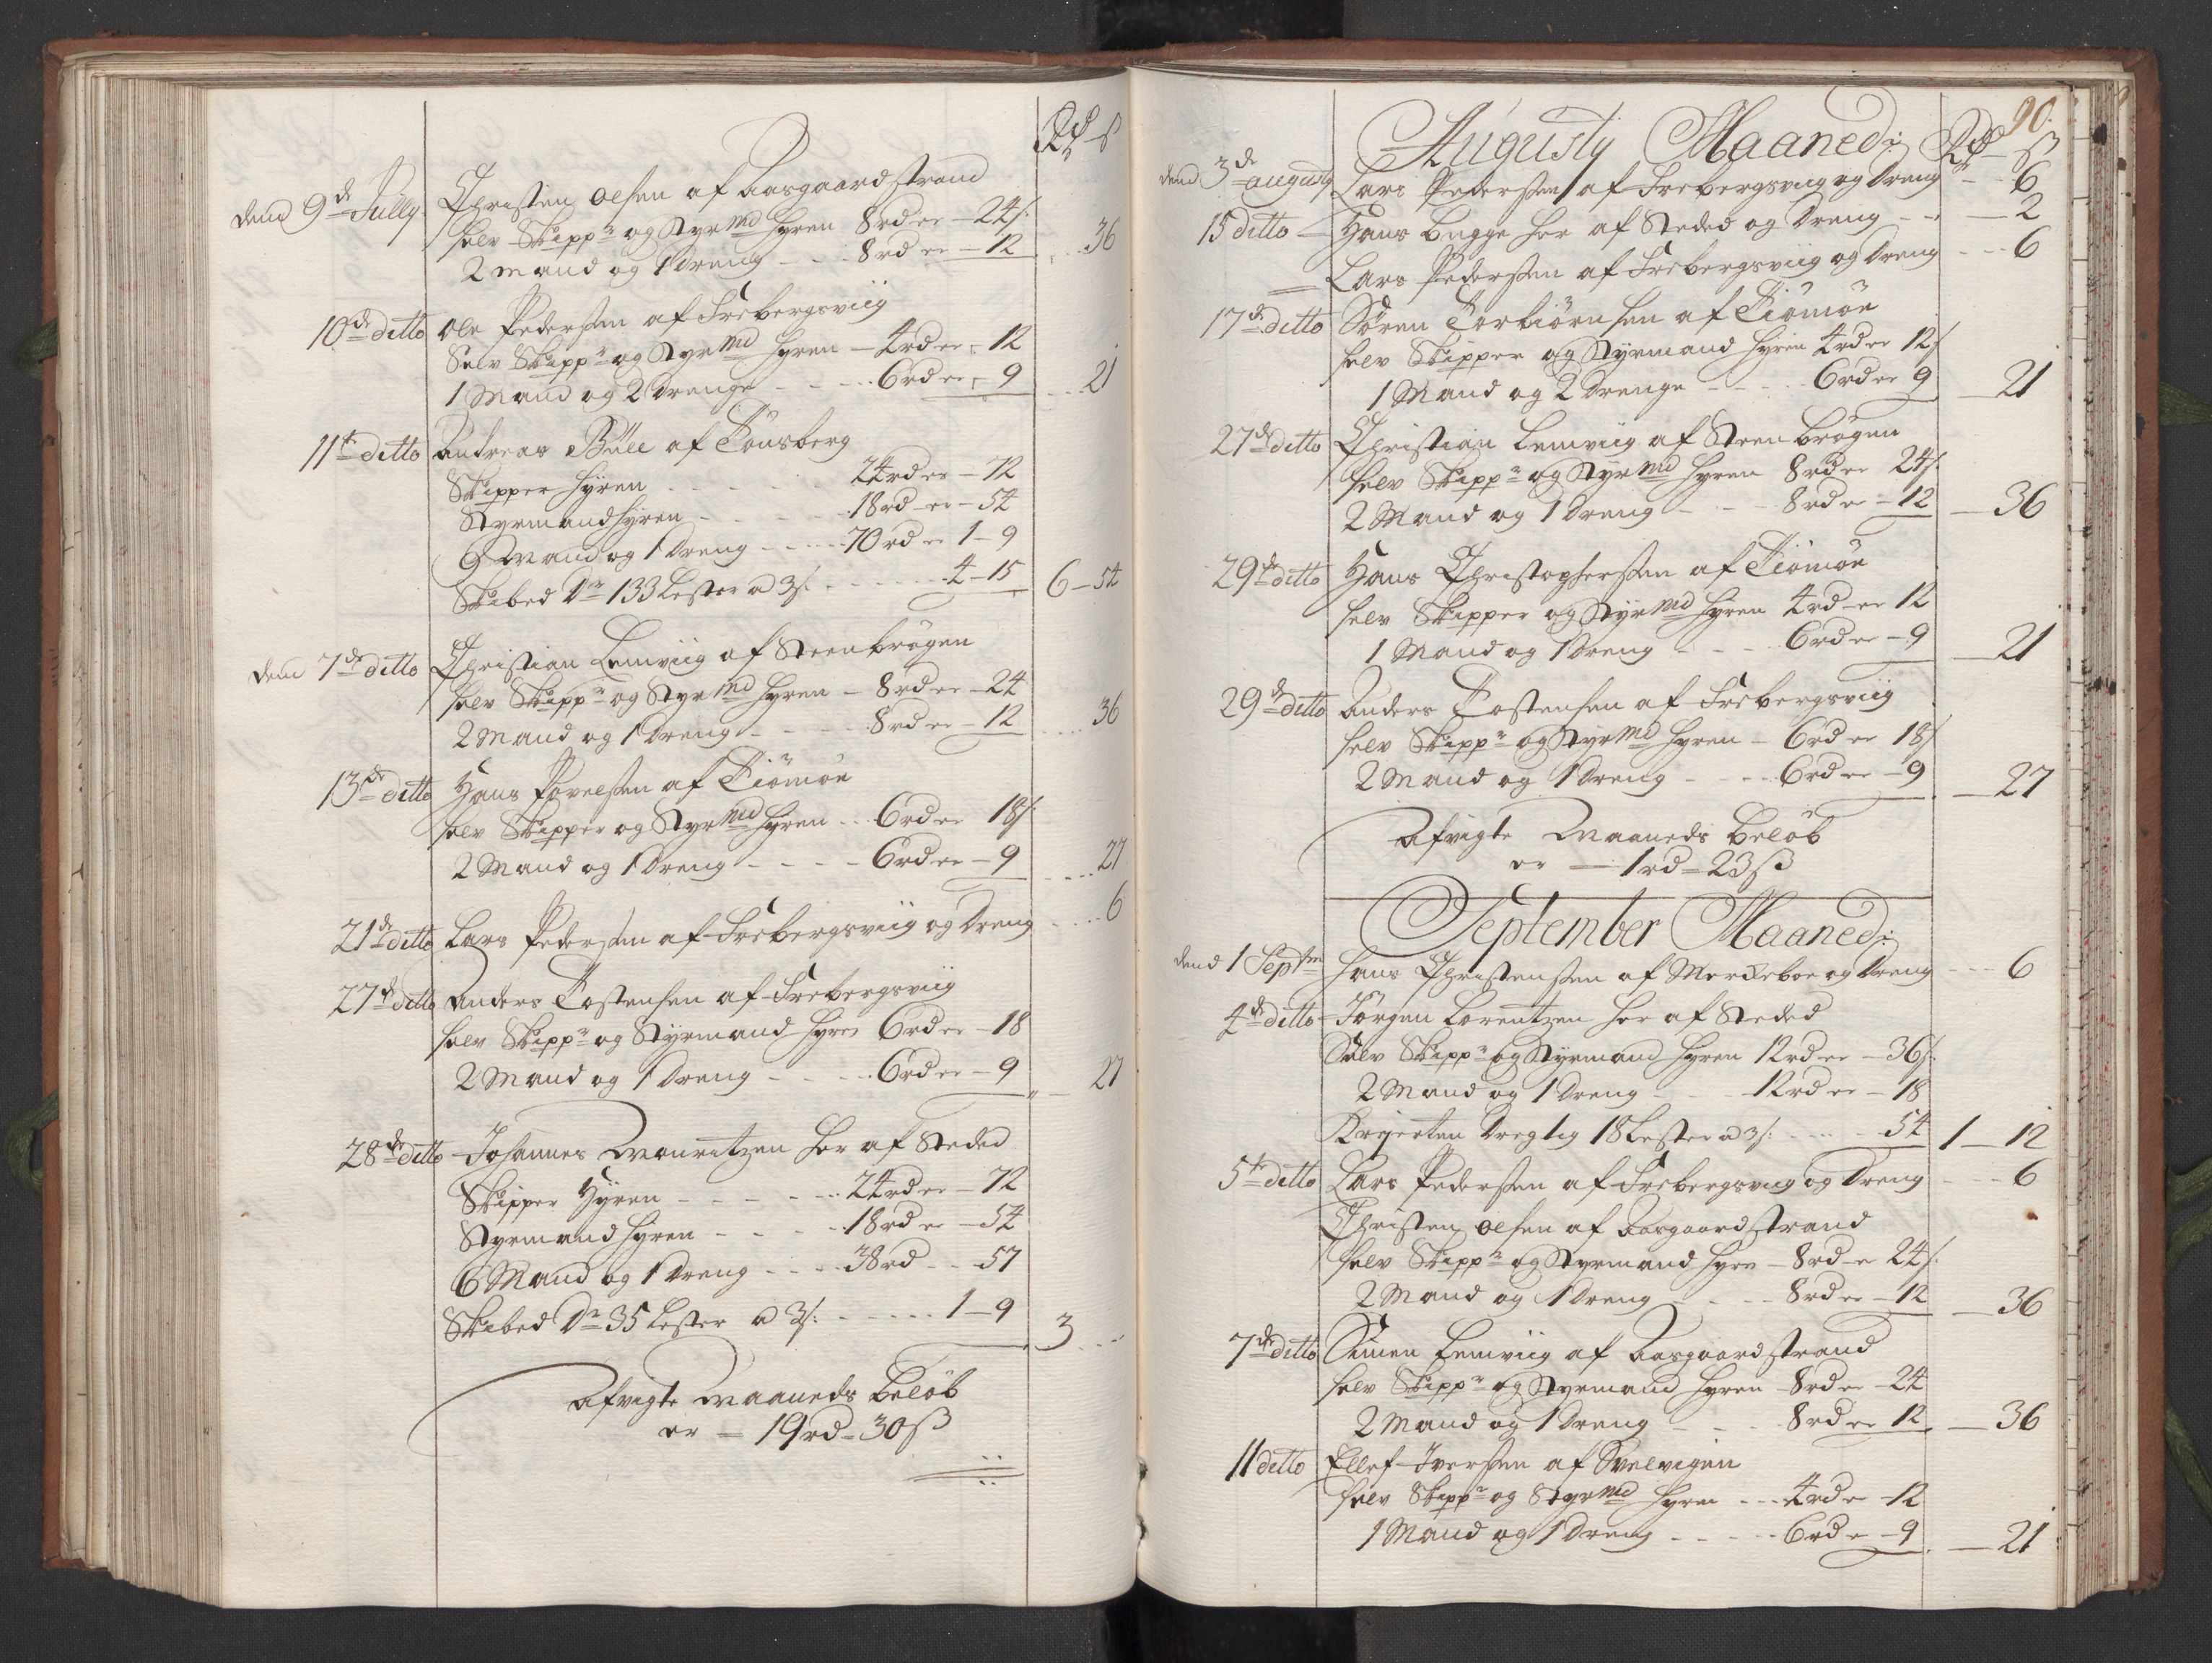 Rd ß
dend 9de Jully Christen Olsen af Aasgaardstrand
selv Skippr og Styrmd Hyren 8rd er - 24/:
2 Mand og 1 Dreng - - - 8rd er - 12 36
10de ditto Ole Pedersen af Frebergsviig
Selv Skippr og Styrmd Hyren - 4rd er - 12
1 Mand og 2 Drenge - - - - 6rd er - 9 21
11te ditto Andreas Bull af Tønsberg
Skipper Hyren - - - - 24rd er - 72
Styrmand Hyren - - - - 18rd - er - 54
9 Mand og 1 Dreng - - - - 70rd er 1 - 9
Skibed Dr 133 Lester a 3/: - - - - 4 - 15 6 - 54
dend 7de ditto Christian Lemviig af Steenbrøgen
selv Skippr og Styrmd Hyren - 8rd er - 24
2 Mand og 1 Dreng - - - - 8rd er - 12 36
13de ditto Hans Povelsen af Tiømøe
selv Skipper og Styrmd Hyren - - 6rd er 18/:
2 Mand og 1 Dreng - - - - 6rd er - 9 27
21de ditto Lars Pedersen af Frebergsviig og Dreng 6
27de ditto Anders Tostensen af Frebergsviig
selv Skippr og Styrmand Hyre 6rd er - 18
2 Mand og 1 Dreng - - - - 6rd er - 9 27
28de ditto Johannes Mouritzen her af Steded
Skipper Hyren - - - - - 24rd er - 72
Styrmand Hyren - - - - 18rd er - 54
6 Mand og 1 Dreng - - - - 38rd - - 57
Skibed Dr 35 Lester a 3/: - - - - - 1 - 9 3 - -
Afvigte Maaneds Beløb
er - 19rd - 30ß
90.
Augusty Maaned: Rd ß
dend 3de augusty Lars Pedersen af Frebergsviig og Dreng - - 6
15 ditto - Hans Bugge her af Steded og Dreng - - - 2
Lars Pedersen af Frebergsviig og Dreng - - - 6
17de ditto Søren Torbiørnsen af Tiømøe
selv Skipper og Styrmand Hyren 4rd er 12/
1 Mand og 2 Drenge - - - - 6rd er 9 - 21
27de ditto Christian Lemviig af Steenbrøgen
selv Skippr og Styrmd Hyren 8rd er 24/:
2 Mand og 1 Dreng - - - 8rd er - 12 - 36
29de ditto Hans Christophersen af Tiømøe
selv Skipper og Styrmd Hyren 4rd - er 12
1 Mand og 1 Dreng - - - 6rd er - 9 - 21
29de ditto Anders Tostensen af Frebergsviig
selv Skippr og Styrmd Hyren - 6rd er 18/
2 Mand og 1 Dreng - - - - 6rd er - 9 - 27
Afvigte Maaneds Beløb
er - 1rd - 23ß
September Maaned:
dend 1 Septm Hans Christensen af Merkeboe og Dreng - - - 6
4de ditto - Jørgen Lorentzen her af Steded
Selv Skippr og Styrmand Hyren 12rd er - 36/:
2 Mand og 1 Dreng - - - 12rd er - 18
Krejerten Dregtig 18 Lester a 3/: - - - - 54 1 - 12
5te ditto Lars Pedersen af Frebergsviig og Dreng - - - 6
Christen Olsen af Aasgaardstrand
selv Skippr og Styrmand Hyre - 8rd - er 24/:
2 Mand og 1 Dreng - - - - 8rd er - 12 - 36
7de ditto Simen Lemviig af Aasgaardstrand
selv Skippr og Styrmand Hyren - 8rd er - 24
2 Mand og 1 Dreng - - - 8rd er 12 - 36
11 ditto Ellef Iversen af Svelvigen
selv Skippr og Styrmd Hyren - - - 4rd er - 12
1 Mand og 1 Dreng - - - - - 6rd er - 9 - 21